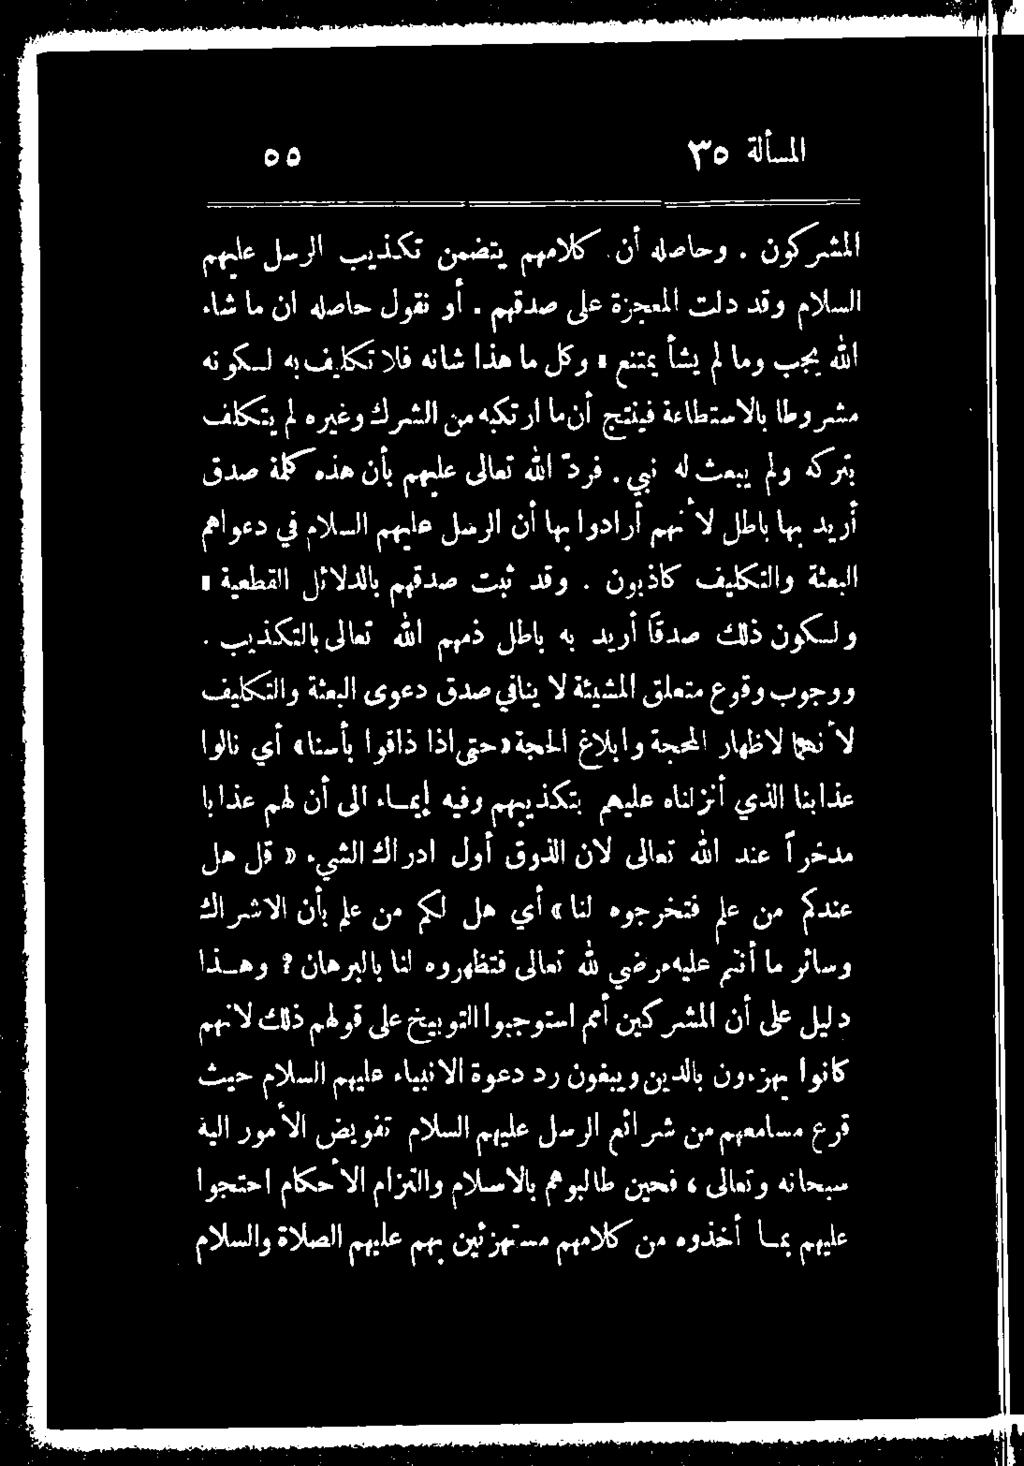 المسألة ٣٥ ٥٥
المشركون . وحاصله أن كلامهم يتضمن تكذيب الرسل عليهم
السلام وقد دلت المعجزة على صدقهم . أو نقول حاصله ان ما شاء
الله يجب وما لم يشأ يمتنع ، وكل ما هذا شانه فلا تكليف به لكونه
مشروطا بالاستطاعة فينتج أن ما ارتكبه من الشرك وغيره لم يتكلف
بتركه ولم يبعث له نبي . فردّ الله تعالى عليهم بأن هذه كلمة صدق
أريد بها باطل لأنهم أرادوا بها أن الرسل عليهم السلام في دعواهم
البعثة والتكليف كاذبون . وقد ثبت صدقهم بالدلائل القطعية ،
ولكون ذلك صدقاً أريد به باطل ذمهم الله تعالى بالتكذيب .
ووجوب وقوع متعلق المشيئة لا ينافي صدق دعوى البعثة والتكليف
لأنهما لاظهار المحجة وابلاغ الحجة «حتى اذا ذاقوا بأسنا» أي نالوا
عذابنا الذي أنزلناه عليهم بتكذيبهم وفيه إيماء الى أن لهم عذابا
مدخراً عند الله تعالى لان الذوق أول ادراك الشيء « قل هل
عندكم من علم فتخرجوه لنا » أي هل لكم من علم بأن الاشراك
وسائر ما أنتم عليه مرضي لله تعالى فتظهروه لنا بالبرهان ? وهذا
دليل على أن المشركين أمم استوجبوا التوبيخ على قولهم ذلك لأنهم
كانوا يهزءون بالدين ويبغون رد دعوة الانبياء عليهم السلام حيث
قرع مسامعهم من شرائع الرسل عليهم السلام تفويض الأمور اليه
سبحانه وتعالى ، فحين طالبوهم بالاسلام والتزام الأحكام احتجوا
عليهم بما أخذوه من كلامهم مستهزئين بهم عليهم الصلاة والسلام